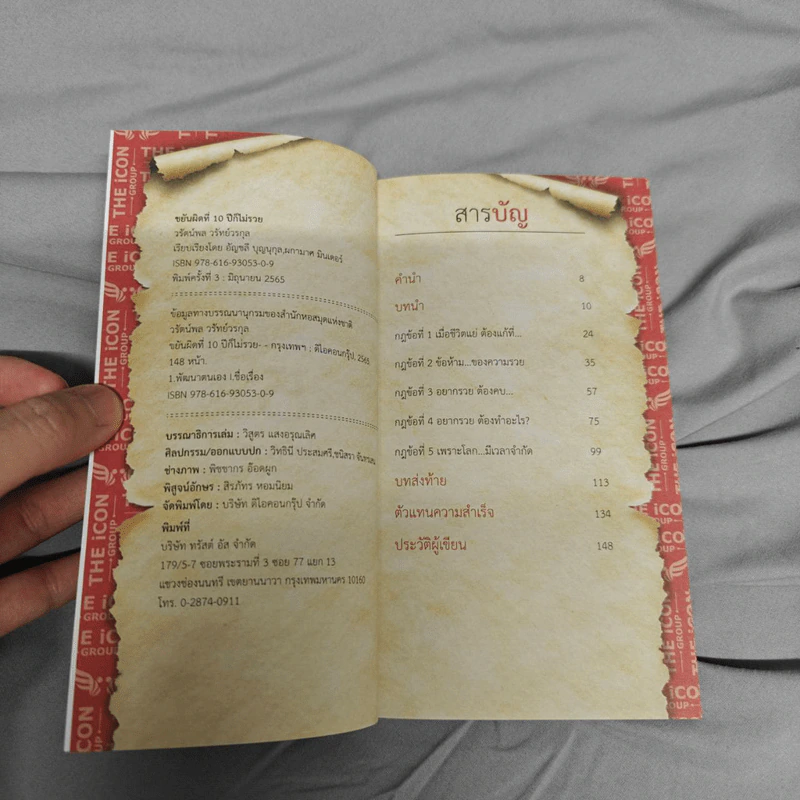 ขยันผิดที่ 10 ปีก็ไม่รวย
วรัตน์พล วรัทย์วรกุล
เรียบเรียงโดย อัญชลี บุญนุกุล,ผกามาศ มินเดอร์
ISBN 978-616-93053-0-9
พิมพ์ครั้งที่ 3 : มิถุนายน 2565
ข้อมูลทางบรรณานุกรมของสำนักหอสมุดแห่งชาติ
วรัตน์พล วรัทย์วรกุล
ขยันผิดที่ 10 ปีก็ไม่รวย- - กรุงเทพฯ : ดิไอคอนกรุ๊ป, 2565
148 หน้า.
1.พัฒนาตนเอง I.ชื่อเรื่อง
ISBN 978-616-93053-0-9
บรรณาธิการเล่ม : วิสูตร แสงอรุณเลิศ
ศิลปกรรม/ออกแบบปก : วิทธินี ประสมศรี,ชนิสรา
ช่างภาพ : พิชชากร อ๊อดผูก
พิสูจน์อักษร : สิรภัทร หอมนิยม
จัดพิมพ์โดย : บริษัท ดิไอคอนกรุ๊ป จำกัด
พิมพ์ที่
บริษัท ทรัสต์ อัส จำกัด
179/5-7 ซอยพระรามที่ 3 ซอย 77 แยก 13
แขวงช่องนนทรี เขตยานนาวา กรุงเทพมหานคร 10160
โทร. 0-2874-0911
สารบัญ
คำนำ 8
บทนำ 10
กฎข้อที่ 1 เมื่อชีวิตแย่ ต้องแก้ที่... 24
กฎข้อที่ 2 ข้อห้าม...ของความรวย 35
กฎข้อที่ 3 อยากรวย ต้องคบ... 57
กฎข้อที่ 4 อยากรวย ต้องทำอะไร? 75
กฎข้อที่ 5 เพราะโลก...มีเวลาจำกัด 99
บทส่งท้าย 113
ตัวแทนความสำเร็จ 134
ประวัติผู้เขียน 148
THE iCON
GROUP